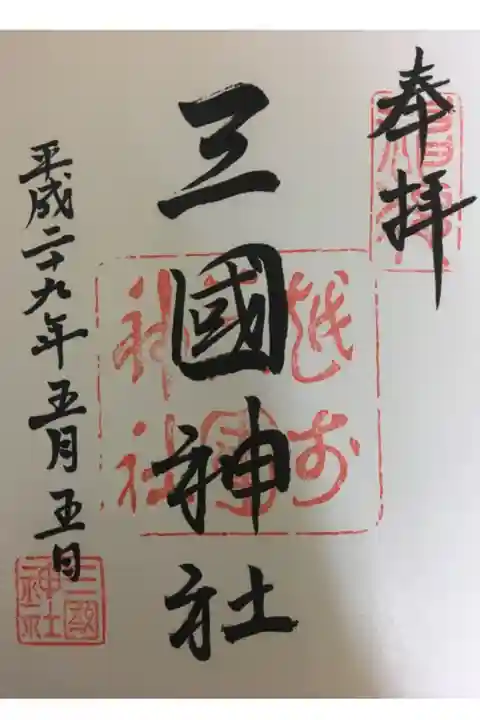 奉拝
三國神社
越前
三國
神社
平成二十九年五月五日
三國
神社